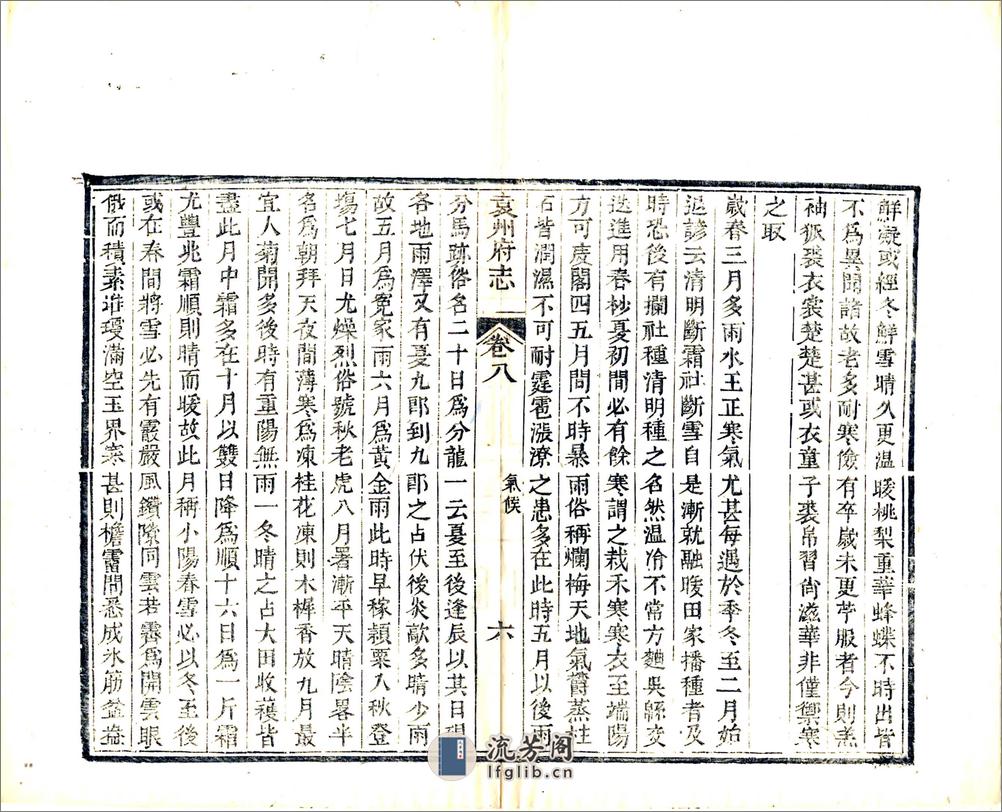 鮮凝或經冬鮮雪晴久更温暖桃梨重華蜂蝶不時出皆
不為異聞諸故老多耐寒儉有卒歲未更苧服者今則羔
袖狐裘衣裳楚楚甚或衣童子裘帛習尚滋華非僅禦寒
之取
歲春三月多雨水王正寒氣尤甚每遇於季冬至二月始
退諺云清明斷霜社斷雪自是漸就融暖田家播種者及
時恐後有攔社種清明種之名然温冷不常方麯吳緜交
迭進用春杪憂初間必有餘寒謂之栽禾寒寒衣至端陽
方可庋閣四五月間不時暴雨俗稱爛梅天地氣欝蒸柱
石皆潤濕不可耐霆雹漲潦之患多在此時五月以後雨
袁州府志
卷八
氣候
六
分馬跡俗名二十日為分龍一云夏至後逢辰以其日覘
各地雨澤又有憂九郎到九郎之占伏後炎歊多晴少雨
故五月為寃家雨六月為黃金雨此時早稼穎粟入秋登
塲七月日尤燥烈俗號秋老虎八月署漸平天晴陰畧半
名為朝拜天夜間薄寒為凍桂花凍則木樨香放九月最
宜人菊開多後時有重陽無雨一冬晴之占大田收穫皆
盡此月中霜多在十月以雙日降為順十六日為一斤霜
尤豐兆霜順則晴而暖故此月稱小陽春雪必以冬至後
或在春間將雪必先有霰嚴風鑽隙同雲若霽為開雲眼
俄而積素堆瓊滿空玉界寒甚則檐霤間悉成氷筯盆盎
流芳阁
lfglib.cn